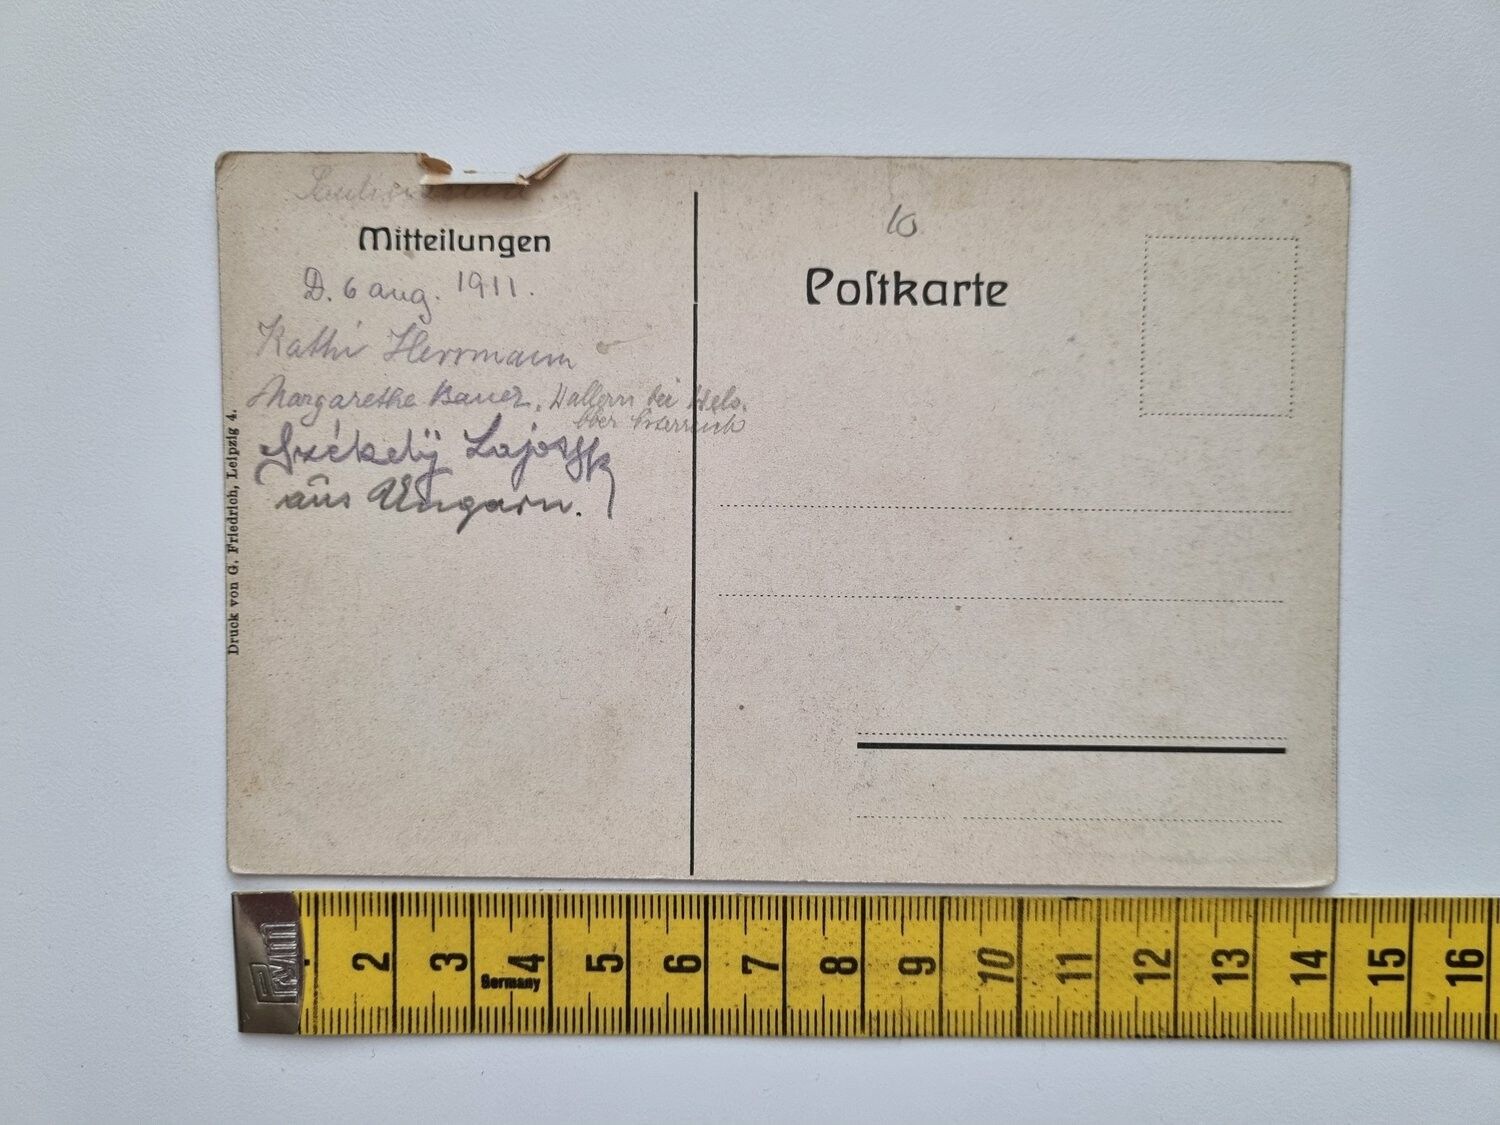 Mitteilungen
D. 6 aug. 1911.
Kathi Herrmann
Margarethe Bauer, Wallern bei Wels.
Ober
Székely Lajos
aus Ungarn.
Druck von G. Friedrich, Leipzig 4.
10
Poſtkarte
Prym
2 3 4 5 6 7 8 9 10 11 12 13 14 15 16
Germany